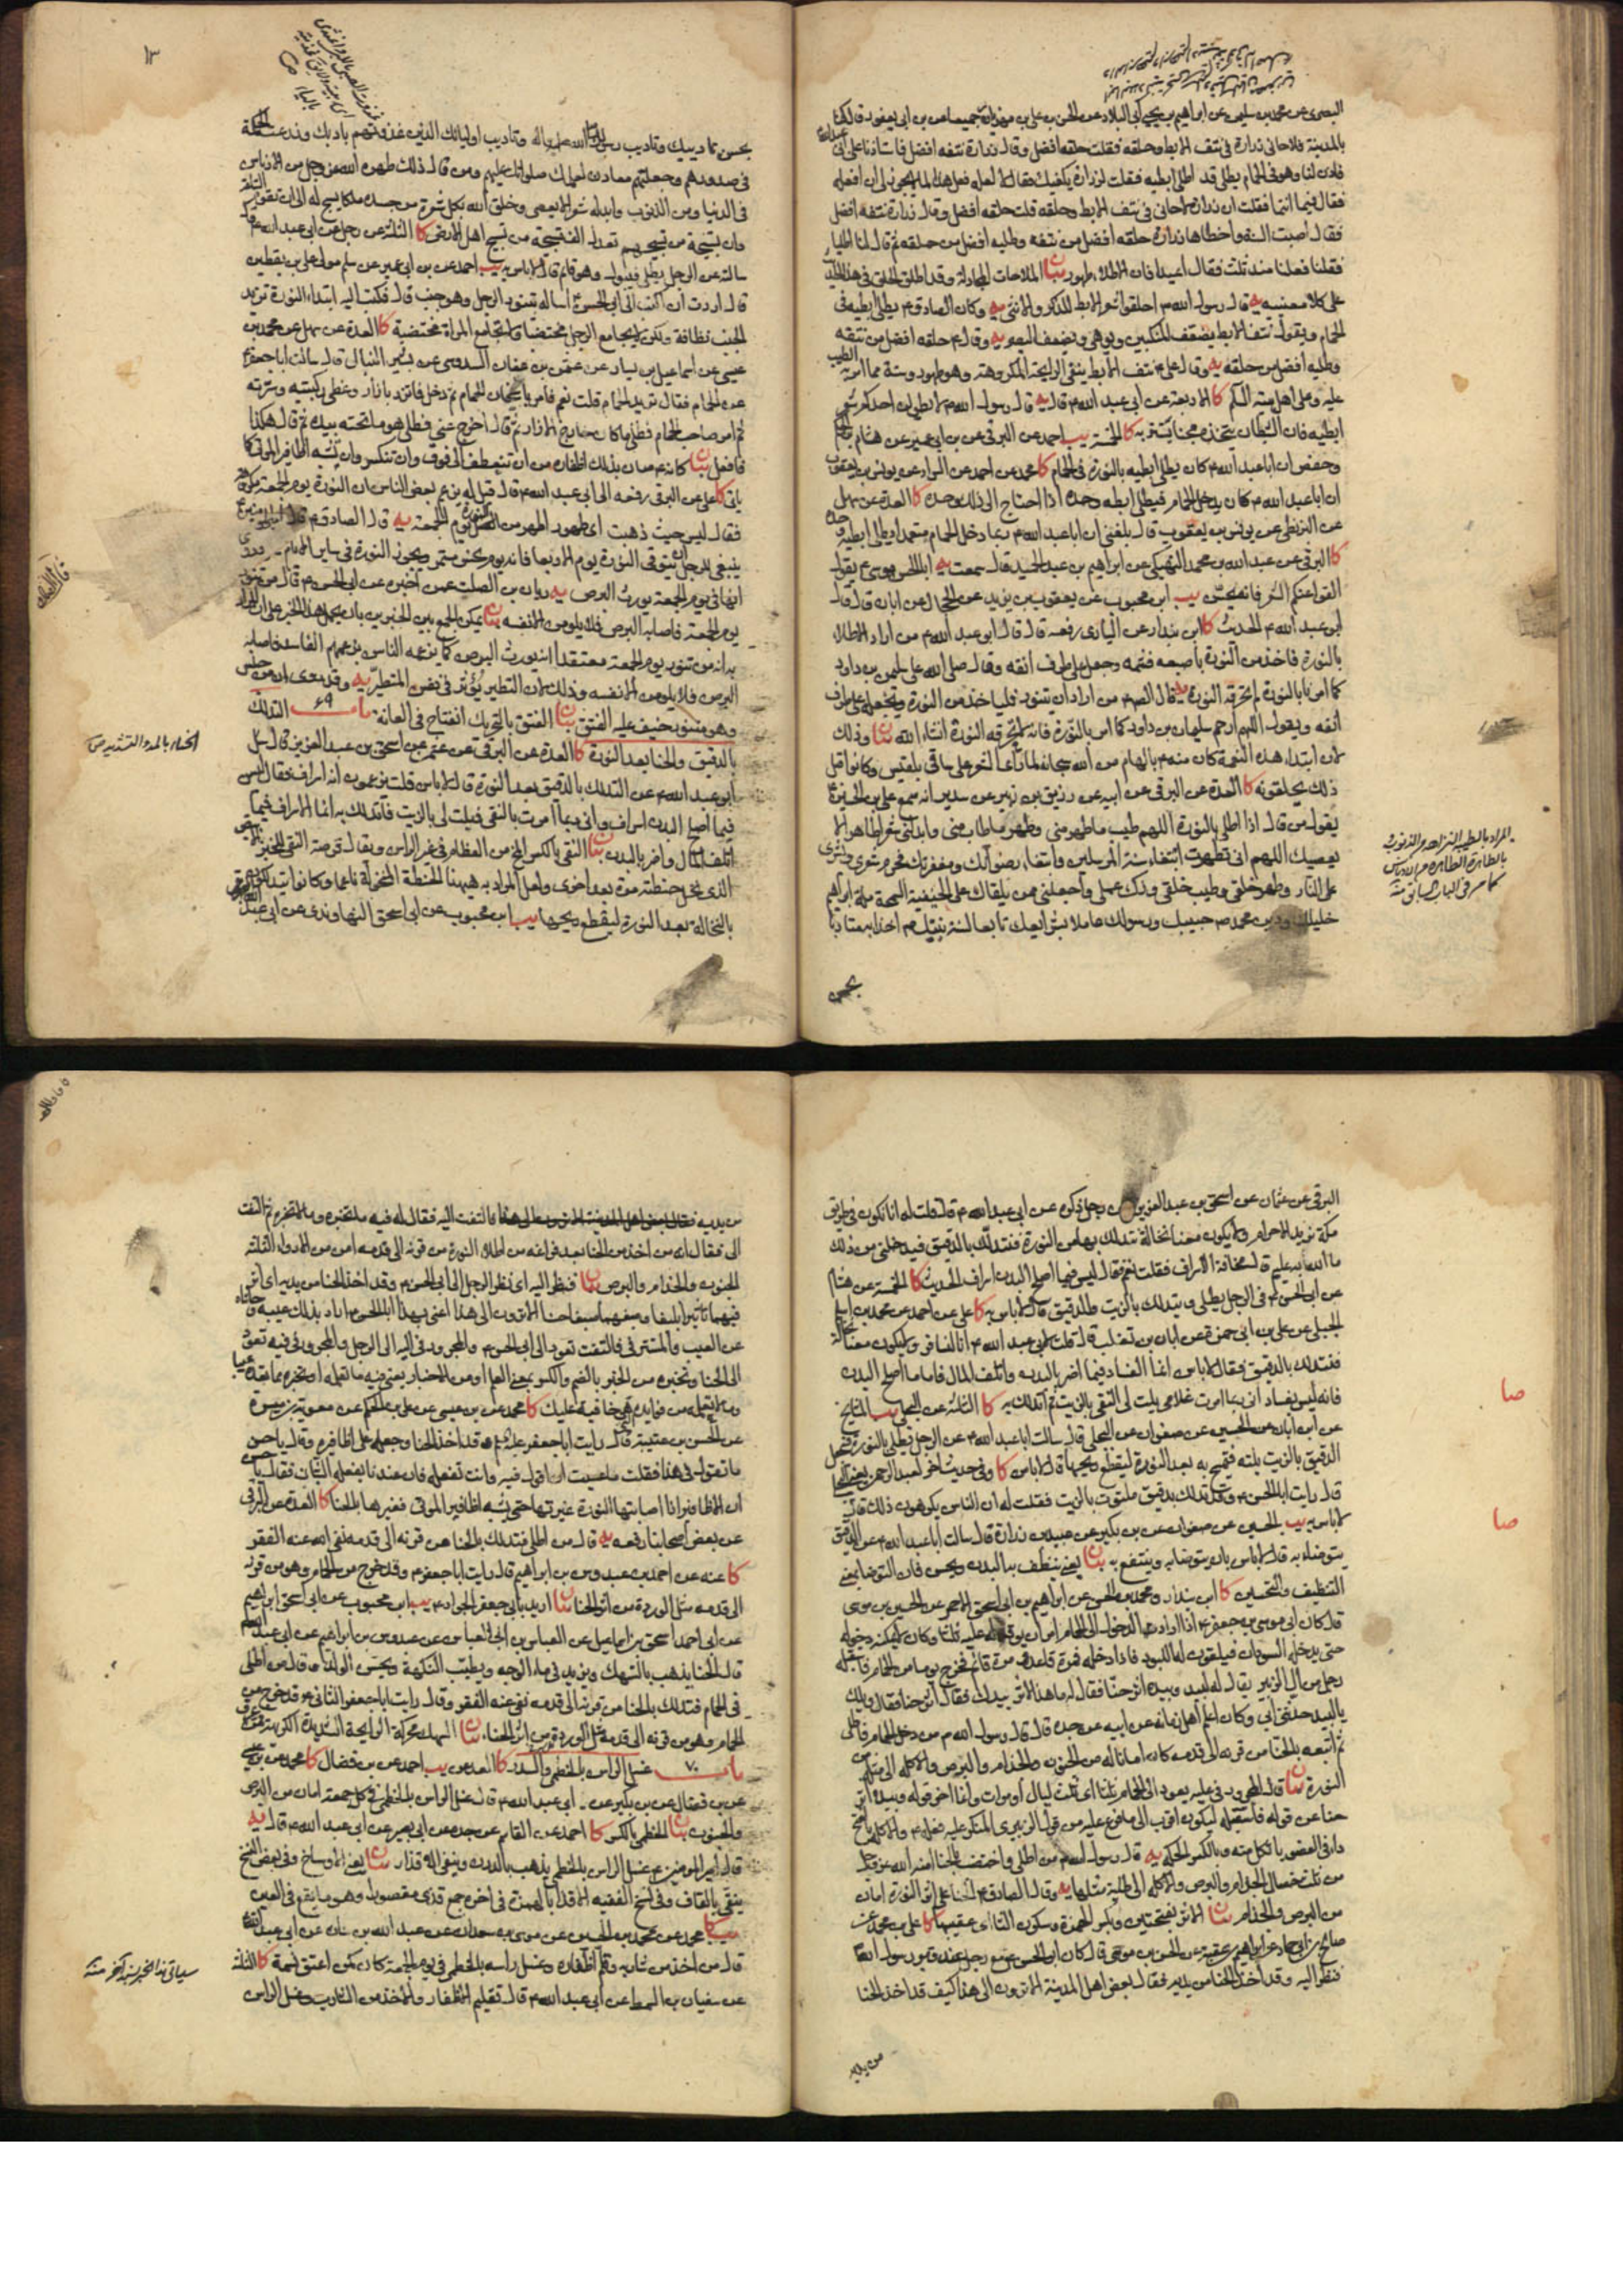 البصرى عن محمد بن سليمن عن ابراهيم بن يحيى بن ابى البلاد عن الحسن بن على بن مهران جميعا عن بن ابى يعفور قال كنا
بالمدينة فلاحانى زرارة فى نتف الابط وحلقه فقلت حلقه افضل وقال زرارة نتفه افضل فاستاذنا على ابى عبدالله ع
فاذن لنا وهو فى الحمام يطلى قد اطلى ابطيه فقلت لزرارة يكفيك فقال لا لعله فعل هذا لما لا يجوز لى ان افعله
فقال فيما انتما فقلت ان زرارة لاحانى فى نتف الابط وحلقه قلت حلقه افضل وقال زرارة نتفه افضل
فقال اصبت السنة واخطاها زرارة حلقه افضل من نتفه وطليه افضل من حلقه ثم قال لنا اطليا
فقلنا فعلنا منذ ثلث فقال اعيدا فان الاطلاء طهور بيان الملاحات المجادلة وقد اطلق الحلق فى هذا الحديث
على كلا معنييه يه قال رسول الله ص احلقوا شعر الابط للذكر والانثى يه وكان الصادق ع يطلى ابطيه فى
الحمام ويقول نتف الابط يضعف المنكبين ويوهى ويضعف البصر يه وقال ع حلقه افضل من نتفه
وطليه افضل من حلقه يه وقال على ع نتف الابط ينفى الرايحة المكروهة وهو طهور وسنة مما امر به الطيب
عليه وعلى اهل بيته السلم كا الاربعة عن ابى عبد الله ع قال يه قال رسول الله ص لا يطولن احدكم شعر
ابطيه فان الشيطان يتخذه مجنا يستتر به كا الخمسة يب احمد عن البرقى عن بن ابى عمير عن هشام بن الحكم
وحفص ان ابا عبد الله ع كان يطلى ابطيه بالنورة فى الحمام كا محمد عن احمد عن السراد عن يونس بن يعقوب
ان ابا عبد الله ع كان يدخل الحمام فيطلى ابطه وحده اذا احتاج الى ذلك وحده كا العدة عن سهل
عن البزنطى عن يونس بن يعقوب قال بلغنى ان ابا عبد الله ع ربما دخل الحمام متعمدا يطلى ابطيه وحده
كا البرقى عن عبد الله بن محمد النهيكى عن ابراهيم بن عبد الحميد قال سمعت يه ابا الحسن موسى ع يقول
القوا عنكم الشعر فانه يحسن يب ابن محبوب عن يعقوب بن يزيد عن الحجال عن ابان قال قال
ابو عبد الله ع الحديث كا ابن بندار عن السيارى رفعه قال قال ابو عبد الله ع من اراد الاطلاء
بالنورة فاخذ من النورة باصبعه فشمه وجعل على طرف انفه وقال صلى الله على سليمن بن داود
كما امرنا بالنورة لم تحرقه النورة يه قال الصادق ع من اراد ان يتنور فلياخذ من النورة ويجعله على طرف
انفه ويقول اللهم ارحم سليمان بن داود كما امر بالنورة فانه لا تحرقه النورة انشاء الله بيان وذلك
لان ابتداء هذه النعمة كان منه ع بالهام من الله سبحانه لما رآى الشعر على ساقى بلقيس وكانوا قبل
ذلك يحلقونه كا العدة عن البرقى عن ابيه عن رزيق بن زبير عن سدير انه سمع على بن الحسين ع
يقول من قال اذا اطلى بالنورة اللهم طيب ما طهر منى وطهر ما طاب منى وابدلنى شعرا طاهرا لا
يعصيك اللهم انى تطهرت ابتغاء سنة المرسلين وابتغاء رضوانك ومغفرتك فحرم شعرى وبشرى
على النار وطهر خلقى وطيب خلقى وزك عملى واجعلنى ممن يلقاك على الحنيفية السمحة ملة ابراهيم
خليلك ودين محمد ص حبيبك ورسولك عاملا بشرايعك تابعا لسنة نبيك ص آخذا به متادبا
بحسن
المراد بالطيب النزاهة من الذنوب
بالطهارة الطهارة من الادناس
كما مر فى الباب السابق منه
١٣
بحسن تاديبك وتاديب رسول الله صلى الله عليه واله وتاديب اوليائك الذين غذوتهم بادبك وزرعت الحكمة
فى صدورهم وجعلتهم معادن لعلمك صلواتك عليهم ومن قال ذلك طهره الله عز وجل من الادناس
فى الدنيا ومن الذنوب وابدله شعرا لا يعصى وخلق الله بكل شعرة من جسده ملكا يسبح له الى ان تقوم الساعة
وان تسبيحة من تسبيحهم تعدل الف تسبيحة من تسبيح اهل الارض كا الثلثة عن رجل عن ابى عبد الله ع
سالته عن الرجل يطلى فيبول وهو قائم قال لا باس به يب احمد عن بن ابى عمير عن سلم مولى على بن يقطين
قال اردت ان اكتب الى ابى الحسن ع اساله يتنور الرجل وهو جنب قال فكتب اليه ابتداء النورة تزيد
الجنب نظافة ولكن لا يجامع الرجل مختضبا ولا تجامع المراة مختضبة كا العدة عن سهل عن محمد بن
عيسى عن اسماعيل بن يسار عن عثمن بن عفان السدوسى عن بشير النبال قال سالت ابا جعفر ع
عن الحمام فقال تريد الحمام قلت نعم فامر باسخان الحمام ثم دخل فاتزر بازار وغطى ركبتيه وسرته
ثم امر صاحب الحمام فطلى ما كان خارج الازار ثم قال اخرج عنى فطلى هو ما تحته بيده ثم قال هكذا
فافعل بيان
ياتى كا على عن البرقى رفعه الى ابى عبد الله ع قال قيل له يزعم بعض الناس ان النورة يوم الجمعة مكروهة
فقال ليس حيث ذهبت اى طهور اطهر من النورة يوم الجمعة يه قال الصادق ع قال امير المؤمنين ع
ينبغى للرجل ان يتوقى النورة يوم الاربعا فانه يوم نحس مستمر ويجوز النورة فى ساير الايام وروى
انها فى يوم الجمعة يورث البرص يه ريان بن الصلت عمن اخبره عن ابى الحسن ع قال من تنور
يوم الجمعة فاصابه البرص فلا يلومن الا نفسه بيان يمكن الجمع بين الخبرين بان يحمل هذا الخبر على ان المراد
به انه من تنور يوم الجمعة معتقدا انه يورث البرص كما يزعمه الناس بزعمهم الفاسد فاصابه
البرص فلا يلومن الا نفسه وذلك لان التطير يؤثر فى نفس المتطير يه وقد روى ان من جلس
وهو متنور خيف عليه الفتق بيان الفتق بالتحريك انفتاح فى العانة باب ٦٩ التدلك
بالدقيق والحنا بعد النورة كا العدة عن البرقى عن عثمن عن اسحق بن عبد العزيز قال سئل
ابو عبد الله ع عن التدلك بالدقيق بعد النورة قال لا باس قلت يزعمون انه اسراف فقال ليس
فيما اصلح البدن اسراف وانى ربما امرت بالنقى فيلت لى بالزيت فاتدلك به انما الاسراف فيما
اتلف المال واضر بالبدن بيان النقى بالكسر المخ من العظام فى غير الراس ويقال قرصة النقى للخبز
الذى نخل حنطته مرة بعد اخرى ولعل المراد به ههنا الحنطة المنخولة ناعما وكانوا يتدلكون
بالنخالة بعد النورة ليقطع ريحها يب ابن محبوب عن ابى اسحق النهاوندى عن ابى عبدالله
الحناء بالمد والتشديد ص
البرقى عن عثمان عن اسحق بن عبد العزيز عن رجل ذكره عن ابى عبد الله ع قال قلت له انا نكون فى طريق
مكة نريد الاحرام ولا يكون معنا نخالة نتدلك بها من النورة فنتدلك بالدقيق فيدخلنى من ذلك
ما الله به عليم قال مخافة الاسراف فقلت نعم فقال ليس فيما اصلح البدن اسراف الحديث كا الخمسة عن هشام
عن ابى الحسن ع فى الرجل يطلى ويتدلك بالزيت والدقيق قال لا باس به كا على عن احمد عن محمد بن اسلم
الجبلى عن على بن ابى حمزة عن ابان بن تغلب قال قلت لابى عبد الله ع انا لنسافر ولا يكون معنا نخالة
فنتدلك بالدقيق فقال لا باس انما الفساد فيما اضر بالبدن واتلف المال فاما ما اصلح البدن
فانه ليس بفساد انى ربما امرت غلامى يلت لى النقى بالزيت ثم اتدلك به كا الثلثة عن البجلى يب المشايخ
صا
عن ابن ابان عن الحسين عن صفوان عن البجلى قال سالت ابا عبد الله ع عن الرجل يطلى بالنورة فيجعل
الدقيق بالزيت يلته فيمسح به بعد النورة ليقطع ريحها قال لا باس كا وفى حديث اخر لعبد الرحمن
قال رايت ابا الحسن ع وقد تدلك بدقيق ملتوت بالزيت فقلت له ان الناس يكرهون ذلك قال
لا باس به يب الحسين عن صفوان عن بن بكير عن عبيد بن زرارة قال سالت ابا عبد الله ع عن الدقيق
صا
يتوضا به قال لا باس بان يتوضا به وينتفع به بيان يعنى ينظف به البدن ويحسن فان التوضا بمعنى
التنظيف والتحسين كا ابن بندار ومحمد بن الحسن عن ابراهيم بن اسحق الاحمر عن الحسين بن موسى
قال كان ابى موسى بن جعفر ع اذا اراد دخول الحمام امر ان يوقد له عليه ثلثا وكان لا يمكنه دخوله
حتى يدخله السودان فيلقون له اللبود فاذا دخله فمرة قاعد ومرة قائم فخرج يوما من الحمام فاستقبله
رجل من ال الزبير يقال له لبيد وبيده اثر حنا فقال له ما هذا الاثر بيدك فقال اثر حنا فقال ويلك
يا لبيد حدثنى ابى وكان اعلم اهل زمانه عن ابيه عن جده قال قال رسول الله ص من دخل الحمام فاطلى
ثم اتبعه بالحنا من قرنه الى قدمه كان امانا له من الجنون والجذام والبرص والاكلة الى مثله من
النورة بيان
حنا عن قوله فاستقبله ليكون اقرب الى ما فرع عليه من قول الزبيرى المنكر عليه فعله ع والاكلة
داء فى العضو ياتكل منه وبالكسر الحكة يه قال رسول الله ص من اطلى واختضب بالحنا امنه الله عز وجل
من ثلث خصال الجذام والبرص والاكلة الى طلية مثلها يه وقال الصادق ع الحنا على اثر النورة امان
من البرص والجذام بيان الاثر بفتحتين وبكسر الهمزة وسكون الثا اى عقيبها كا على بن محمد عن
صالح بن ابى حماد عن ابراهيم بن عقبة عن الحسن بن موسى قال كان ابو الحسن ع مع رجل عند قبر رسول الله ص
فنظر اليه وقد اخذ الحنا من يديه فقال بعض اهل المدينة الا ترون الى هذا كيف قد اخذ الحنا
من يديه
من يديه فالتفت اليه فقال له فيه ما تخبره وما لا تخبره ثم التفت
الى فقال انه من اخذ من الحنا بعد فراغه من اطلاء النورة من قرنه الى قدمه امن من الادواء الثلثة
الجنون والجذام والبرص بيان فنظر اليه اى نظر الرجل الى ابى الحسن ع وقد اخذ الحنا من يديه اى اثر
فيهما تاثيرا بليغا
عن العيب والمستتر فى فالتفت يعود الى ابى الحسن ع والمجرور فى اليه الى الرجل والمجرور فى فيه يعود
الى الحنا وتخبره من الخبر بالضم والكسر بمعنى العلم او من الاخبار
كا محمد عن بن عيسى عن على بن الحكم عن معوية بن ميسرة
عن الحكم بن عتيبة قال رايت ابا جعفر ع وقد اخذ الحنا وجعله على اظافيره وقال يا حكم
ما تقول فى هذا فقلت ما عسيت ان اقول فيه وانت تفعله فان عندنا يفعله الشبان فقال يا حكم
ان الاظافير اذا اصابتها النورة غيرتها حتى تشبه اظافير الموتى فغيرها بالحنا كا العدة عن البرقى
عن بعض اصحابنا رفعه يه قال من اطلى فتدلك بالحنا من قرنه الى قدمه نفى الله عنه الفقر
كا عنه عن احمد بن عبدوس بن ابراهيم قال رايت ابا جعفر ع وقد خرج من الحمام وهو من قرنه
الى قدمه مثل الوردة من اثر الحنا بيان اريد بابى جعفر الجواد ع يب ابن محبوب عن ابى اسحق ابراهيم
عن ابى احمد اسحق بن اسماعيل عن العباس بن ابى العباس عن عبدوس بن ابراهيم عن ابى عبد الله ع
قال الحنا يذهب بالسهك ويزيد فى ماء الوجه ويطيب النكهة ويحسن الولد وقال من اطلى
فى الحمام فتدلك بالحنا من قرنه الى قدمه نفى عنه الفقر وقال رايت ابا جعفر الثانى ع قد خرج من
الحمام وهو من قرنه الى قدمه مثل الوردة من اثر الحناء بيان السهك محركة الرايحة الشديدة الكريهة
باب ٧٠ غسل الراس بالخطمى والسدر كا العدة عن يب احمد عن بن فضال كا محمد عن بن عيسى
عن بن فضال عن بن بكير عن ابى عبد الله ع قال غسل الراس بالخطمى فى كل جمعة امان من البرص
والجنون بيان الخطمى بالكسر كا احمد عن القاسم عن جده عن ابى بصير عن ابى عبد الله ع قال يه
قال امير المؤمنين ع غسل الراس بالخطمى يذهب بالدرن وينفى الاقذار بيان يعنى الاوساخ وفى بعض النسخ
ينقى بالقاف وفى نسخ الفقيه الاقذاء بالهمزة فى اخره جمع قذى مقصورا وهو ما يقع فى العين
يب كا محمد عن محمد بن الحسين عن موسى بن سعدان عن عبد الله بن سنان عن ابى عبد الله ع
قال من اخذ من شاربه وقلم اظفاره وغسل راسه بالخطمى فى يوم الجمعة كان كمن اعتق نسمة كا الثلثة
عن سفيان بن السمط عن ابى عبد الله ع قال تقليم الاظفار والاخذ من الشارب وغسل الراس
سياتى هذا الخبر بسند آخر منه